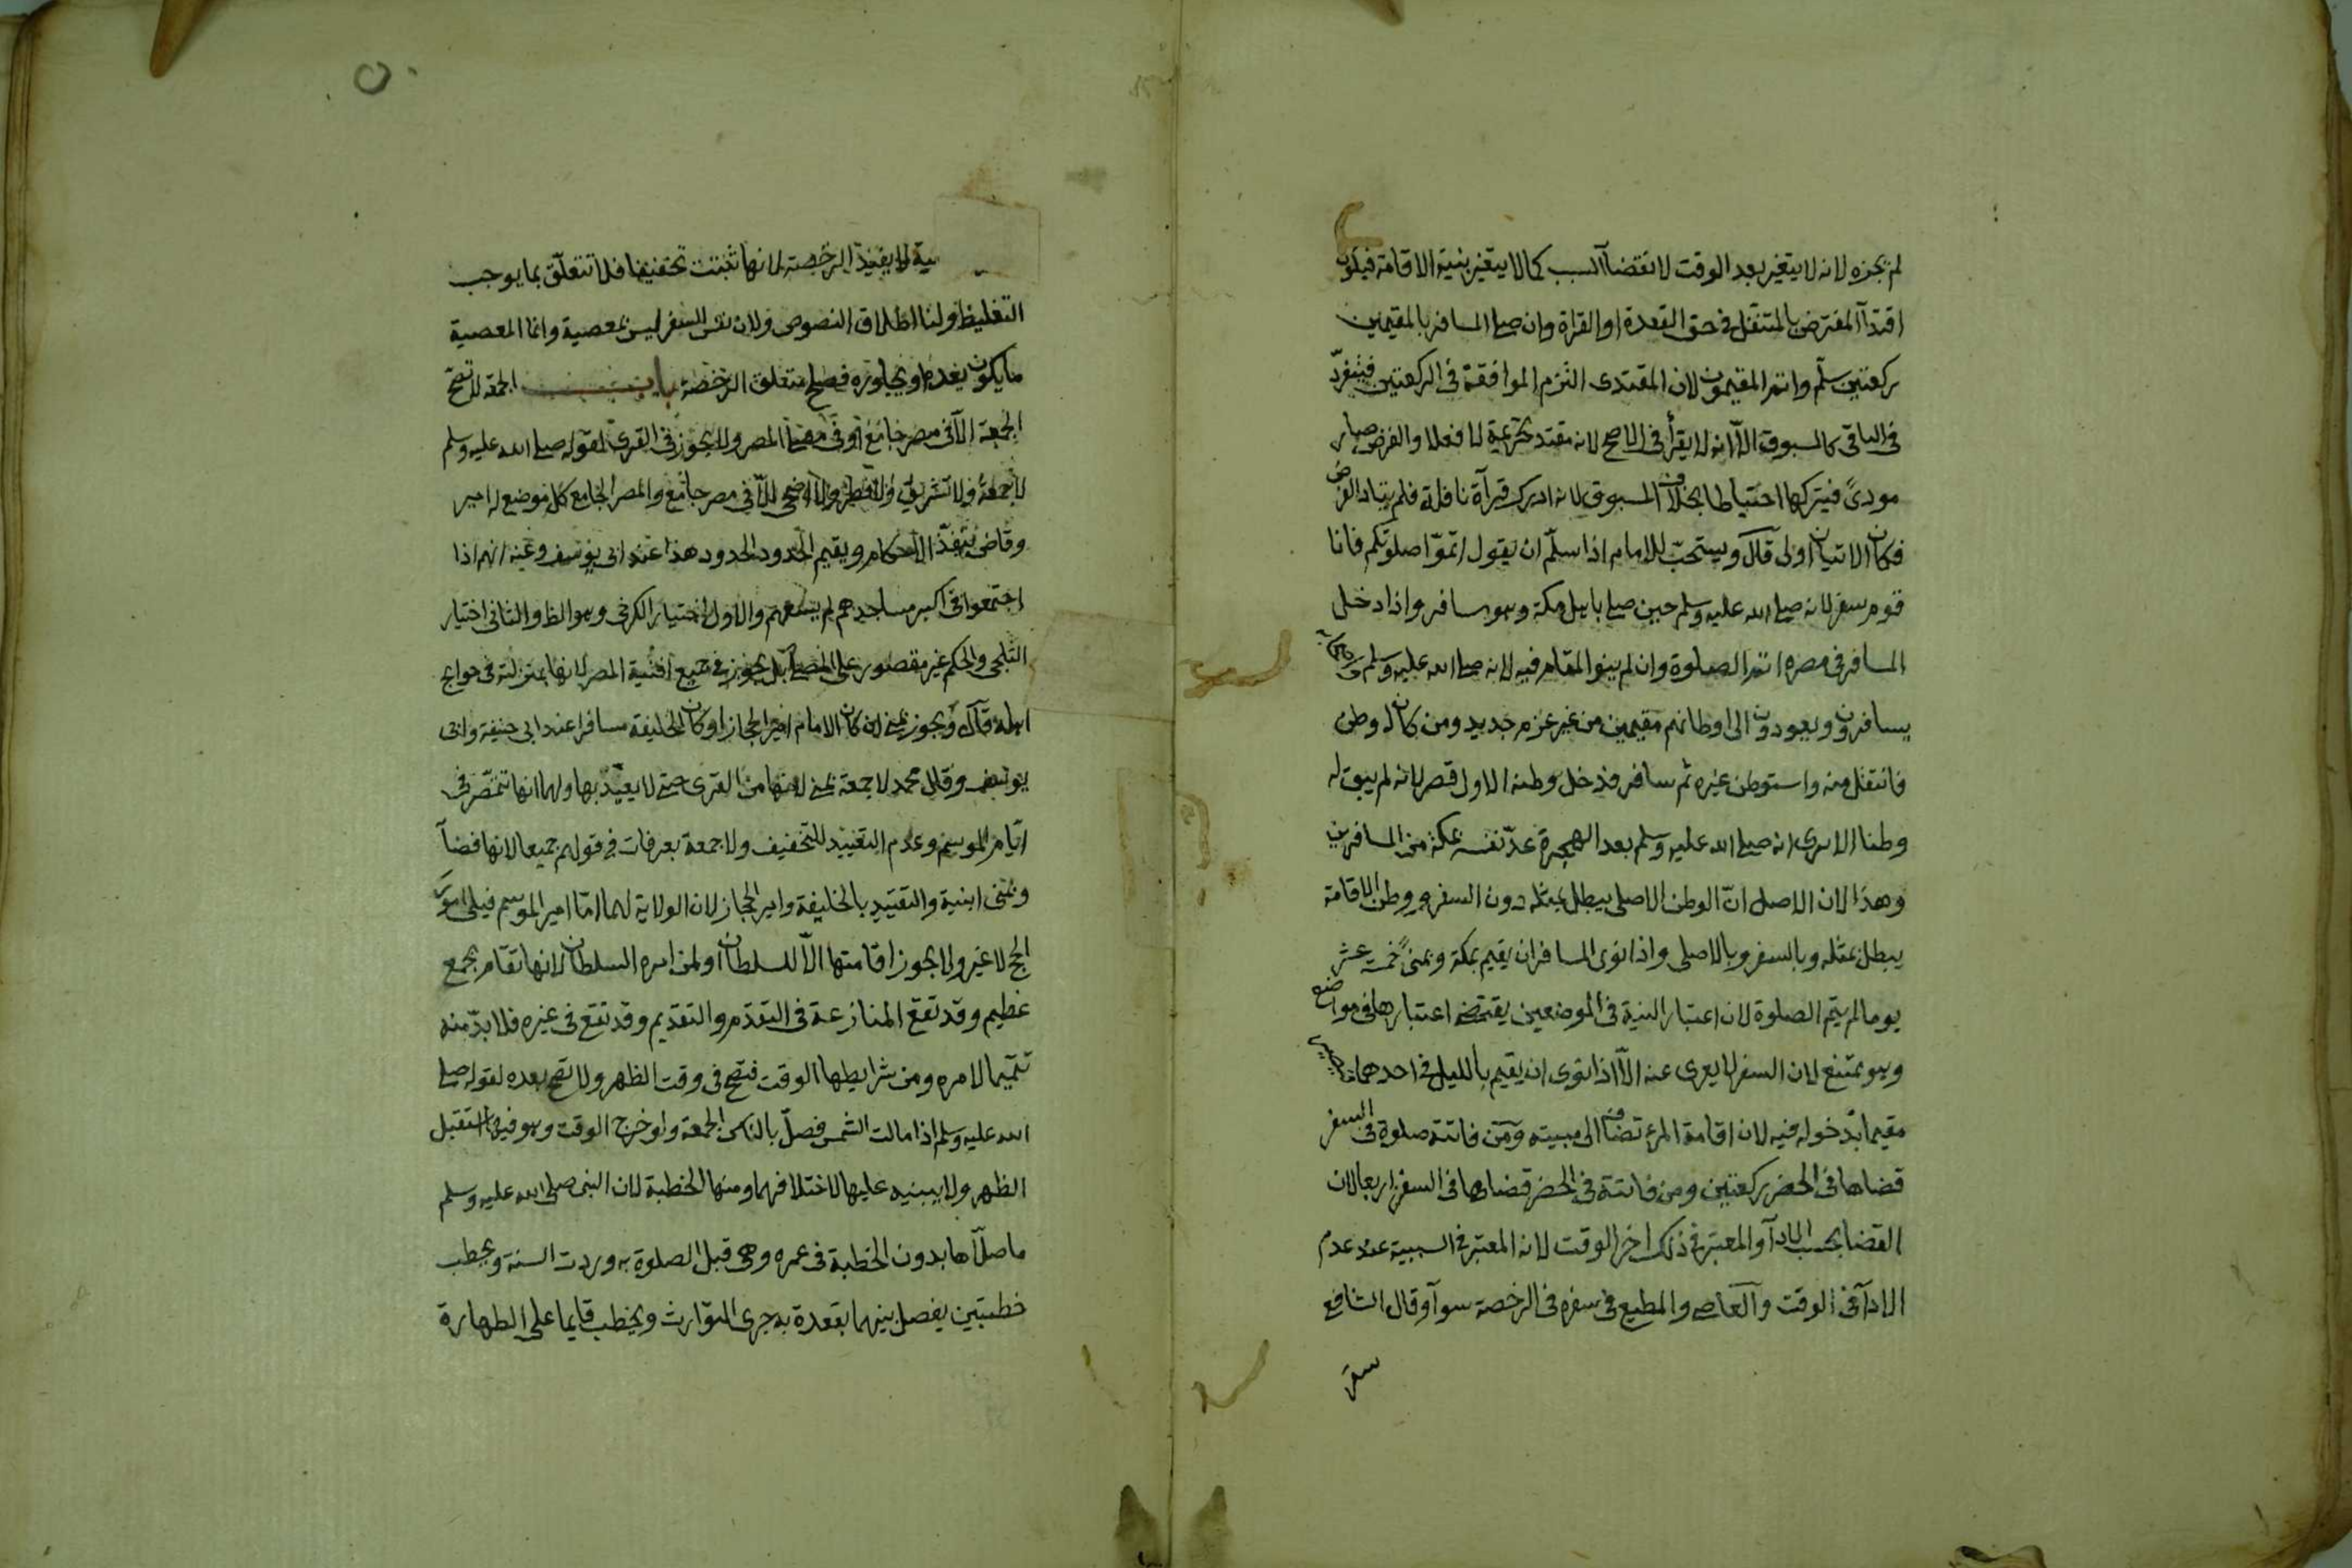 لم يجزه لانه لا يتغير بعد الوقت لانقضآ السبب كما لا يتغير بنية الاقامة فيكون
اقتدآ المفترض بالمتنفل في حق القعدة او القراة وان صلى المسافر بالمقيمين
ركعتين سلّم واتم المقيمون لان المقتدى التزم الموافقة في الركعتين فينفرّد
في الباقي كالمسبوق الاّ انه لا يقرأ في الاصح لانه مقتد تحريمة لا فعلا والفرض صار
مودىً فيتركها احتياطا بخلاف المسبوق لانه ادرك قرآة نافلة فلم يتاد الفرض
فكان الاتيان اولى قآل ويستحبّ للامام اذا سلّم ان يقول اتموّا صلوتكم فانا
قوم سفر لانه صلى الله عليه وسلم حين صلى باهل مكة وهو مسافر واذا دخل
المسافر في مصره اتم الصلوة وان لم ينو المقام فيه لانه صلى الله عليه وسلم واصحابه
يسافرون ويعودون الى اوطانهم مقيمين من غير عزم جديد ومن كان له وطن
فانتقل منه واستوطن غيره ثم سافر فدخل وطنه الاول قصر لانه لم يبق له
وطنا الا يرى انه صلى الله عليه وسلم بعد الهجرة عدّ نفسه بمكة من المسافرين
وهذا لان الاصل انّ الوطن الاصلي يبطل بمثله دون السفر ووطن الاقامة
يبطل بمثله وبالسفر وبالاصلي واذا نوى المسافر ان يقيم بمكة وبمنىً خمسة عشر
يوما لم يتم الصلوة لان اعتبار النية في الموضعين يقتضى اعتبارها في مواضع
وهو ممتنع لان السفر لا يعرى عنه الاّ اذا نوى ان يقيم بالليل في احدهما فيصير
مقيما بدخوله فيه لان اقامة المرء تضاف الى مبيته ومن فاتته صلوة في السفر
قضاها في الحضر ركعتين ومن فاتته في الحضر قضاها في السفر اربعا لان
القضا بحسب الادآ والمعتبر في ذلك اخر الوقت لانه المعتبر في السببية عند عدم
الادآ في الوقت والعاصى والمطيع في سفره في الرخصة سوآ وقال الشافعي
سفر
ية لا يفيد الرخصة لانها تثبت تخفيفا فلا تتعلّق بما يوجب
التغليظ ولنا اطلاق النصوص ولان نفس السفر ليس بمعصية وانما المعصية
ما يكون بعده او يجاوره فصلح متعلق الرخصة باب الجمعة لا تصحّ
الجمعة الاّ في مصر جامع او في مصلى المصر ولا يجوز في القرى لقوله صلى الله عليه وسلم
لا جمعة ولا تشريق ولا فطر ولا اضحى الاّ في مصر جامع والمصر الجامع كل موضع له امير
وقاض ينفذّ الاحكام ويقيم الحدود الحدود هذا عند ابي يوسف وعنه انهم اذا
اجتمعوا في اكبر مساجدهم لم يسعهم والاول اختيار الكرخي وهو الظ والثاني اختيار
الثلجي والحكم غير مقصور على المصلى بل يجوز في جميع افنية المصر لانها بمنزلته في حوايج
اهله قآل ويجوز بمنى ان كان الامام امير الحجاز او كان الخليفة مسافرا عند ابي حنيفة وابي
يوسف وقال محمد لا جمعة بمنى لانها من القرى حتى لا يعيّد بها ولهما انها تتمصّر في
ايّام الموسم وعدم التعييد للتخفيف ولا جمعة بعرفات في قولهم جميعا لانها فضآ
وبمنى ابنية والتقييد بالخليفة وامير الحجاز لان الولاية لهما امّا امير الموسم فيلى امور
الحج لا غير ولا يجوز اقامتها الاّ للسلطان او لمن امره السلطان لانها تقام بجمع
عظيم وقد تقع المنازعة في التقدّم والتقديم وقد تقع في غيره فلا بدّ منه
تتميما لامره ومن شرايطها الوقت فتصح في وقت الظهر ولا تصح بعده لقوله صلى
الله عليه وسلم اذا مالت الشمس فصلّ بالناس الجمعة ولو خرج الوقت وهو فيها استقبل
الظهر ولا يبنيه عليها لاختلافهما ومنها الخطبة لان النبي صلى الله عليه وسلم
ما صلّاها بدون الخطبة في عمره وهي قبل الصلوة به وردت السنة ويخطب
خطبتين يفصل بينهما بقعدة به جرى التوّارث ويخطب قايما على الطهارة